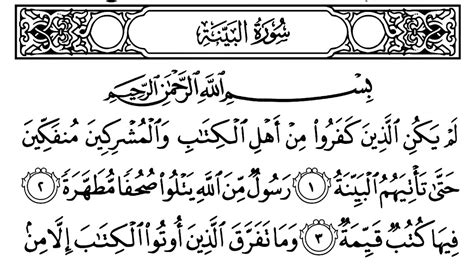 سُورَةُ الْبَيِّنَةِ
بِسْمِ اللَّهِ الرَّحْمَٰنِ الرَّحِيمِ
لَمْ يَكُنِ ٱلَّذِينَ كَفَرُوا۟ مِنْ أَهْلِ ٱلْكِتَٰبِ وَٱلْمُشْرِكِينَ مُنفَكِّينَ
حَتَّىٰ تَأْتِيَهُمُ ٱلْبَيِّنَةُ ١ رَسُولٌ مِّنَ ٱللَّهِ يَتْلُوا۟ صُحُفًا مُّطَهَّرَةً ٢
فِيهَا كُتُبٌ قَيِّمَةٌ ٣ وَمَا تَفَرَّقَ ٱلَّذِينَ أُوتُوا۟ ٱلْكِتَٰبَ إِلَّا مِنۢ